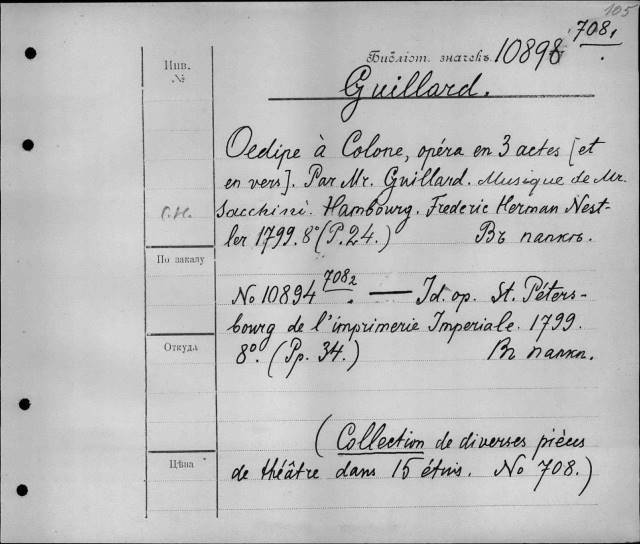 105
Инв.
№
Библіот. значекъ. 10898 708₁
Guillard.
Oedipe à Colone, opéra en 3 actes [et
en vers]. Par Mr. Guillard. Musique de Mr.
Sacchini. Hambourg. Frederic Herman Nest-
ler 1799. 8° (P. 24.) Въ папкѣ.
По заказу
№ 10894 708₂. — Id. op. St. Péters-
bourg de l'imprimerie Imperiale. 1799.
Откуда
8°. (Pp. 34.) Въ папкѣ.
(Collection de diverses pièces
Цѣна
de théâtre dans 15 étuis. No 708.)